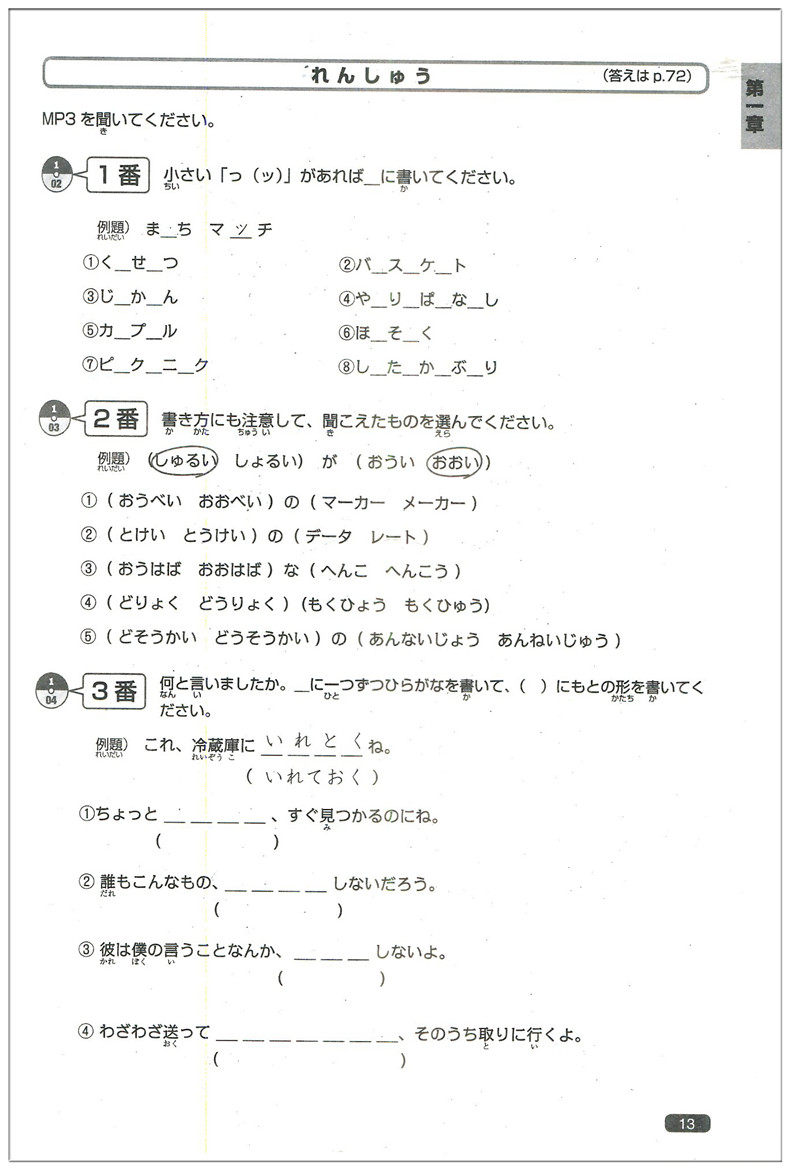 れんしゅう (答えは p.72)
第一章
MP3 を聞いてください。
き
1 02 1番 小さい「っ（ッ）」があれば＿に書いてください。
ちい か
例題） ま＿ち マッチ
れいだい
①く＿せ＿つ ②バ＿ス＿ケ＿ト
③じ＿か＿ん ④や＿り＿ぱ＿な＿し
⑤カ＿プ＿ル ⑥ほ＿そ＿く
⑦ピ＿ク＿ニ＿ク ⑧し＿た＿か＿ぶ＿り
1 03 2番 書き方にも注意して、聞こえたものを選んでください。
か かた ちゅう い き えら
例題） （しゅるい しょるい）が （おうい おおい）
れいだい
①（おうべい おおべい）の（マーカー メーカー）
②（とけい とうけい）の（データ レート）
③（おうはば おおはば）な（へんこ へんこう）
④（どりょく どうりょく）（もくひょう もくひゅう）
⑤（どそうかい どうそうかい）の（あんないじょう あんねいじゅう）
1 04 3番 何と言いましたか。＿に一つずつひらがなを書いて、（ ）にもとの形を書いてく
なん い ひと か かたち か
ださい。
例題） これ、冷蔵庫に いれとくね。
れいだい れいぞう こ
（いれておく）
①ちょっと ＿ ＿ ＿ ＿ 、すぐ見つかるのにね。
み
（ ）
② 誰もこんなもの、＿ ＿ ＿ ＿ しないだろう。
だれ
（ ）
③ 彼は僕の言うことなんか、＿ ＿ ＿ しないよ。
かれ ぼく い
（ ）
④ わざわざ送って ＿ ＿ ＿ ＿ ＿ ＿ ＿、そのうち取りに行くよ。
おく と い
（ ）
13